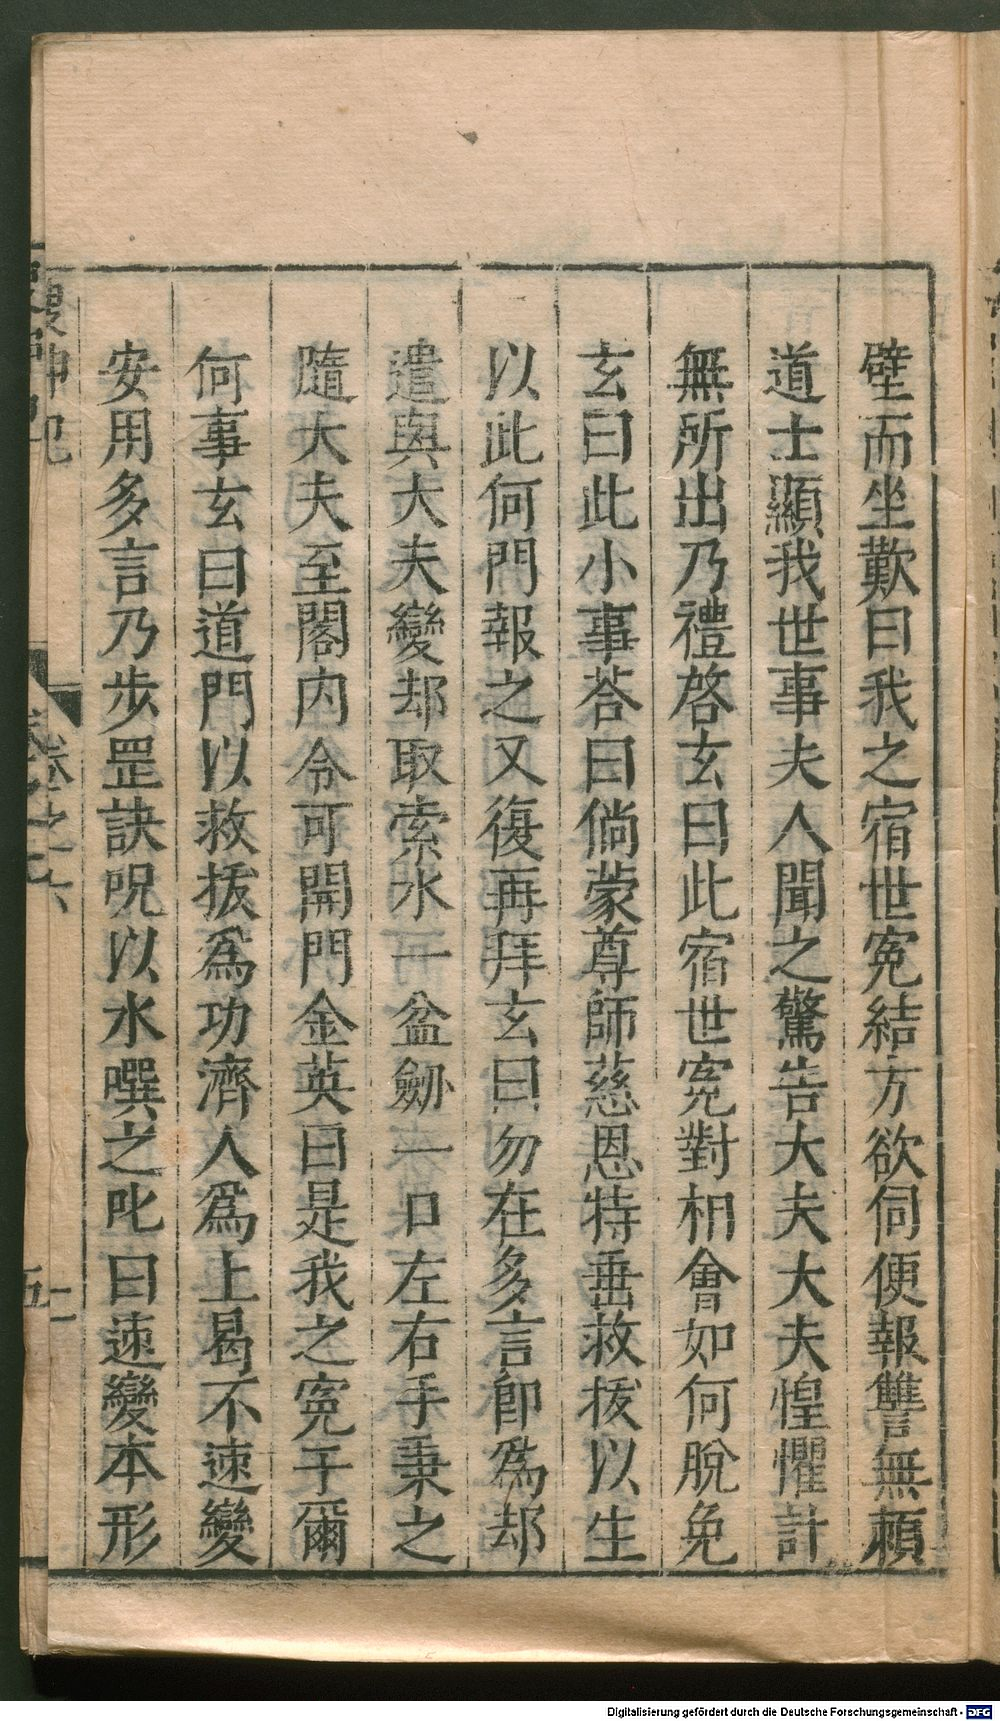 壁而坐歎曰我之宿世冤結方欲伺便報讐無頼
道士顯我世事夫人聞之驚告大夫大夫惶懼計
無所出乃禮啓玄曰此宿世寃對相會如何脫免
玄曰此小事荅曰倘蒙尊師慈恩特垂救拔以生
以此何門報之又復再拜玄曰勿在多言卽爲却
遣與大夫變却取索水一盆劒一口左右手秉之
隨大夫至閣内令可開門金英曰是我之寃于爾
何事玄曰道門以救拔爲功濟人爲上曷不速變
安用多言乃步罡訣呪以水噀之叱曰速變本形
搜神記
卷之六
Digitalisierung gefördert durch die Deutsche Forschungsgemeinschaft - DFG